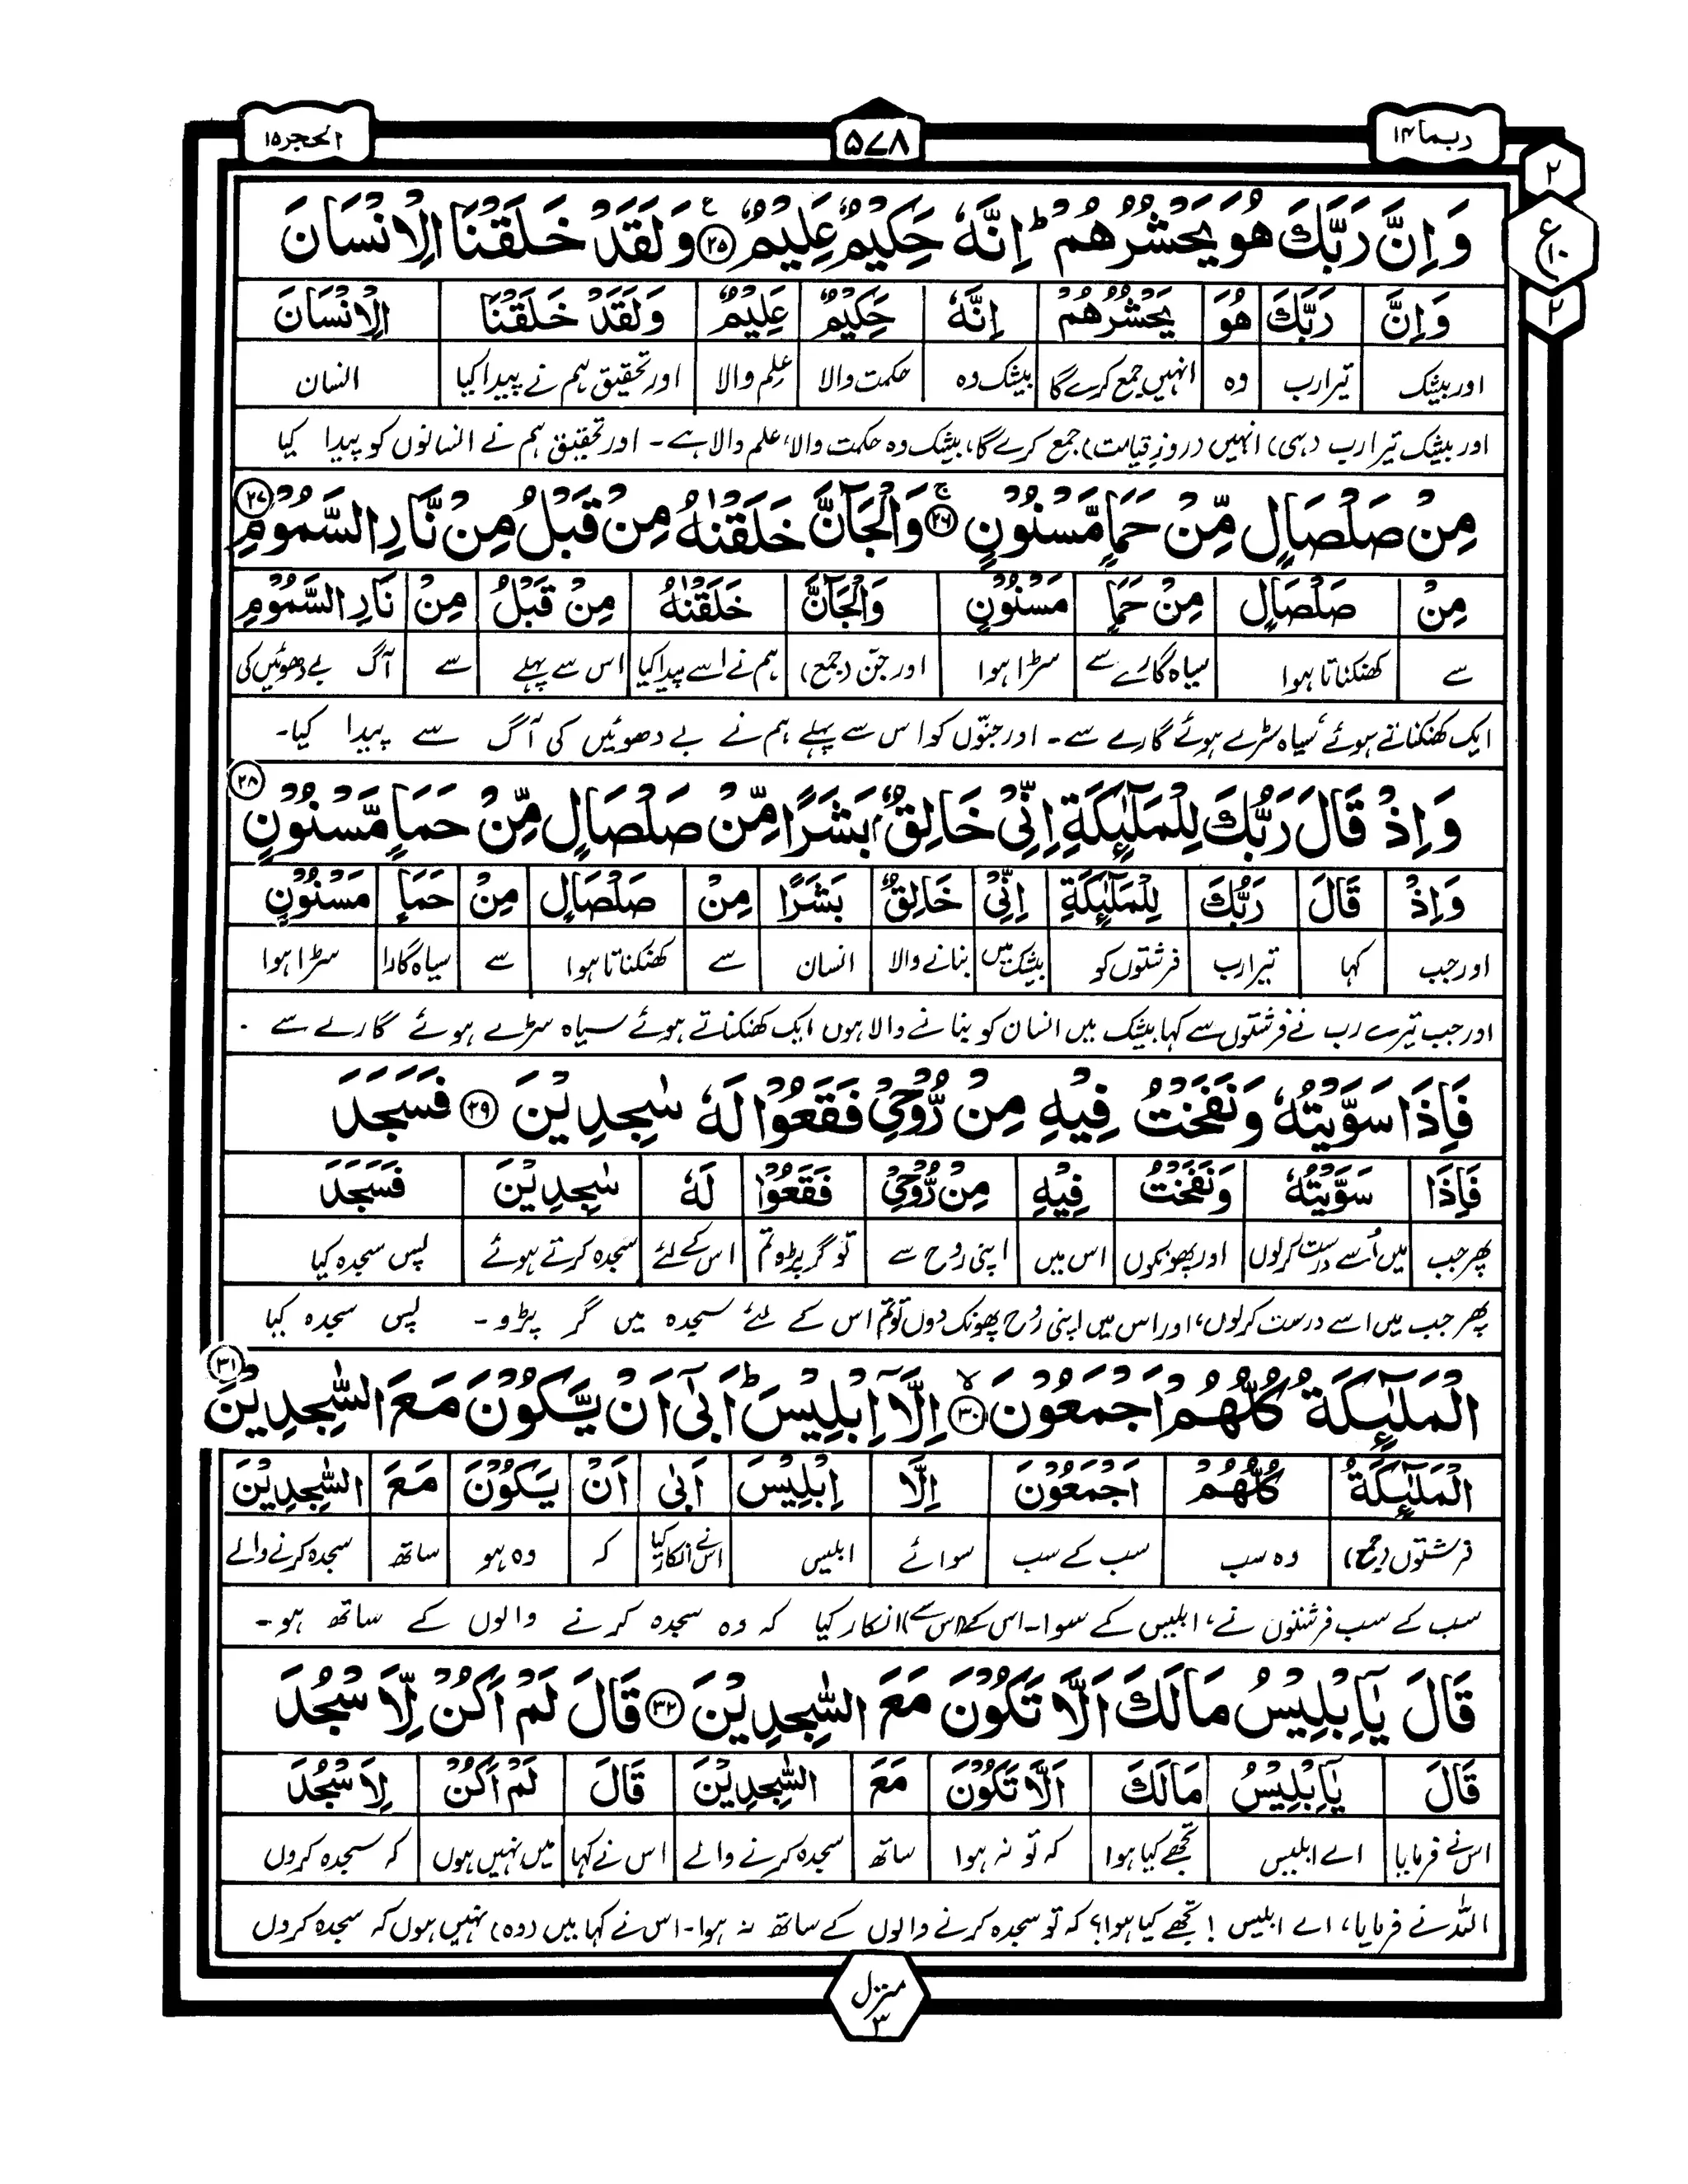 ربما ۱۴
۵۷۸
الحجر ۱۵
۲
ع
۱۰
۲
وَ اِنَّ رَبَّكَ هُوَ يَحْشُرُهُمْ ؕ اِنَّهٗ حَكِيْمٌ عَلِيْمٌ ۝۲۵ وَ لَقَدْ خَلَقْنَا الْاِنْسَانَ
وَ اِنَّ رَبَّكَ هُوَ يَحْشُرُهُمْ اِنَّهٗ حَكِيْمٌ عَلِيْمٌ وَ لَقَدْ خَلَقْنَا الْاِنْسَانَ
اور بیشک تیرا رب وہ انہیں جمع کرے گا بیشک وہ حکمت والا علم والا اور تحقیق ہم نے پیدا کیا انسان
اور بیشک تیرا رب (وہی) انہیں (روزِ قیامت) جمع کرے گا، بیشک وہ حکمت والا، علم والا ہے۔ اور تحقیق ہم نے انسانوں کو پیدا کیا
مِنْ صَلْصَالٍ مِّنْ حَمَاٍ مَّسْنُوْنٍ ۝۲۶ۚ وَ الْجَآنَّ خَلَقْنٰهُ مِنْ قَبْلُ مِنْ نَّارِ السَّمُوْمِ ۝۲۷
مِنْ صَلْصَالٍ مِنْ حَمَاٍ مَسْنُوْنٍ وَ الْجَآنَّ خَلَقْنٰهُ مِنْ قَبْلُ مِنْ نَارِ السَّمُوْمِ
سے کھنکناتا ہوا سیاہ گارے سے سڑا ہوا اور جن (جمع) ہم نے اسے پیدا کیا اس سے پہلے سے آگ بے دھوئیں کی
ایک کھنکناتے ہوئے، سیاہ سڑے ہوئے گارے سے۔ اور جنّوں کو اس سے پہلے ہم نے بے دھوئیں کی آگ سے پیدا کیا۔
وَ اِذْ قَالَ رَبُّكَ لِلْمَلٰٓئِكَةِ اِنِّىْ خَالِقٌۢ بَشَرًا مِّنْ صَلْصَالٍ مِّنْ حَمَاٍ مَّسْنُوْنٍ ۝۲۸
وَ اِذْ قَالَ رَبُّكَ لِلْمَلٰٓئِكَةِ اِنِّىْ خَالِقٌ بَشَرًا مِنْ صَلْصَالٍ مِنْ حَمَاٍ مَسْنُوْنٍ
اور جب کہا تیرا رب فرشتوں کو بیشک میں بنانے والا انسان سے کھنکناتا ہوا سے سیاہ گارا سڑا ہوا
اور جب تیرے رب نے فرشتوں سے کہا بیشک میں انسان کو بنانے والا ہوں ایک کھنکناتے ہوئے سیاہ سڑے ہوئے گارے سے ۔
فَاِذَا سَوَّيْتُهٗ وَ نَفَخْتُ فِيْهِ مِنْ رُّوْحِىْ فَقَعُوْا لَهٗ سٰجِدِيْنَ ۝۲۹ فَسَجَدَ
فَاِذَا سَوَّيْتُهٗ وَ نَفَخْتُ فِيْهِ مِنْ رُّوْحِىْ فَقَعُوْا لَهٗ سٰجِدِيْنَ فَسَجَدَ
پھر جب میں اُسے درست کرلوں اور پھونکوں اس میں اپنی روح سے تو گر پڑو تم اس کے لئے سجدہ کرتے ہوئے پس سجدہ کیا
پھر جب میں اسے درست کرلوں، اور اس میں اپنی روح پھونک دوں تو تم اس کے لئے سجدہ میں گر پڑو۔ پس سجدہ کیا
الْمَلٰٓئِكَةُ كُلُّهُمْ اَجْمَعُوْنَ ۝۳۰ۙ اِلَّاۤ اِبْلِيْسَ ؕ اَبٰٓى اَنْ يَّكُوْنَ مَعَ السّٰجِدِيْنَ ۝۳۱
الْمَلٰٓئِكَةُ كُلُّهُمْ اَجْمَعُوْنَ اِلَّا اِبْلِيْسَ اَبٰى اَنْ يَكُوْنَ مَعَ السّٰجِدِيْنَ
فرشتوں (جمع) وہ سب سب کے سب سوائے ابلیس اس نے انکار کیا کہ وہ ہو ساتھ سجدہ کرنے والے
سب کے سب فرشتوں نے، ابلیس کے سوا۔ اس کے (اس نے) انکار کیا کہ وہ سجدہ کرنے والوں کے ساتھ ہو۔
قَالَ يٰۤاِبْلِيْسُ مَا لَكَ اَلَّا تَكُوْنَ مَعَ السّٰجِدِيْنَ ۝۳۲ قَالَ لَمْ اَكُنْ لِّاَسْجُدَ
قَالَ يٰۤاِبْلِيْسُ مَا لَكَ اَلَّا تَكُوْنَ مَعَ السّٰجِدِيْنَ قَالَ لَمْ اَكُنْ لِاَسْجُدَ
اس نے فرمایا اے ابلیس تجھے کیا ہوا کہ تو نہ ہوا ساتھ سجدہ کرنے والے اس نے کہا میں نہیں ہوں کہ سجدہ کروں
اللہ نے فرمایا، اے ابلیس ! تجھے کیا ہوا؟ کہ تو سجدہ کرنے والوں کے ساتھ نہ ہوا۔ اس نے کہا میں (وہ) نہیں ہوں کہ سجدہ کروں
منزل
۳